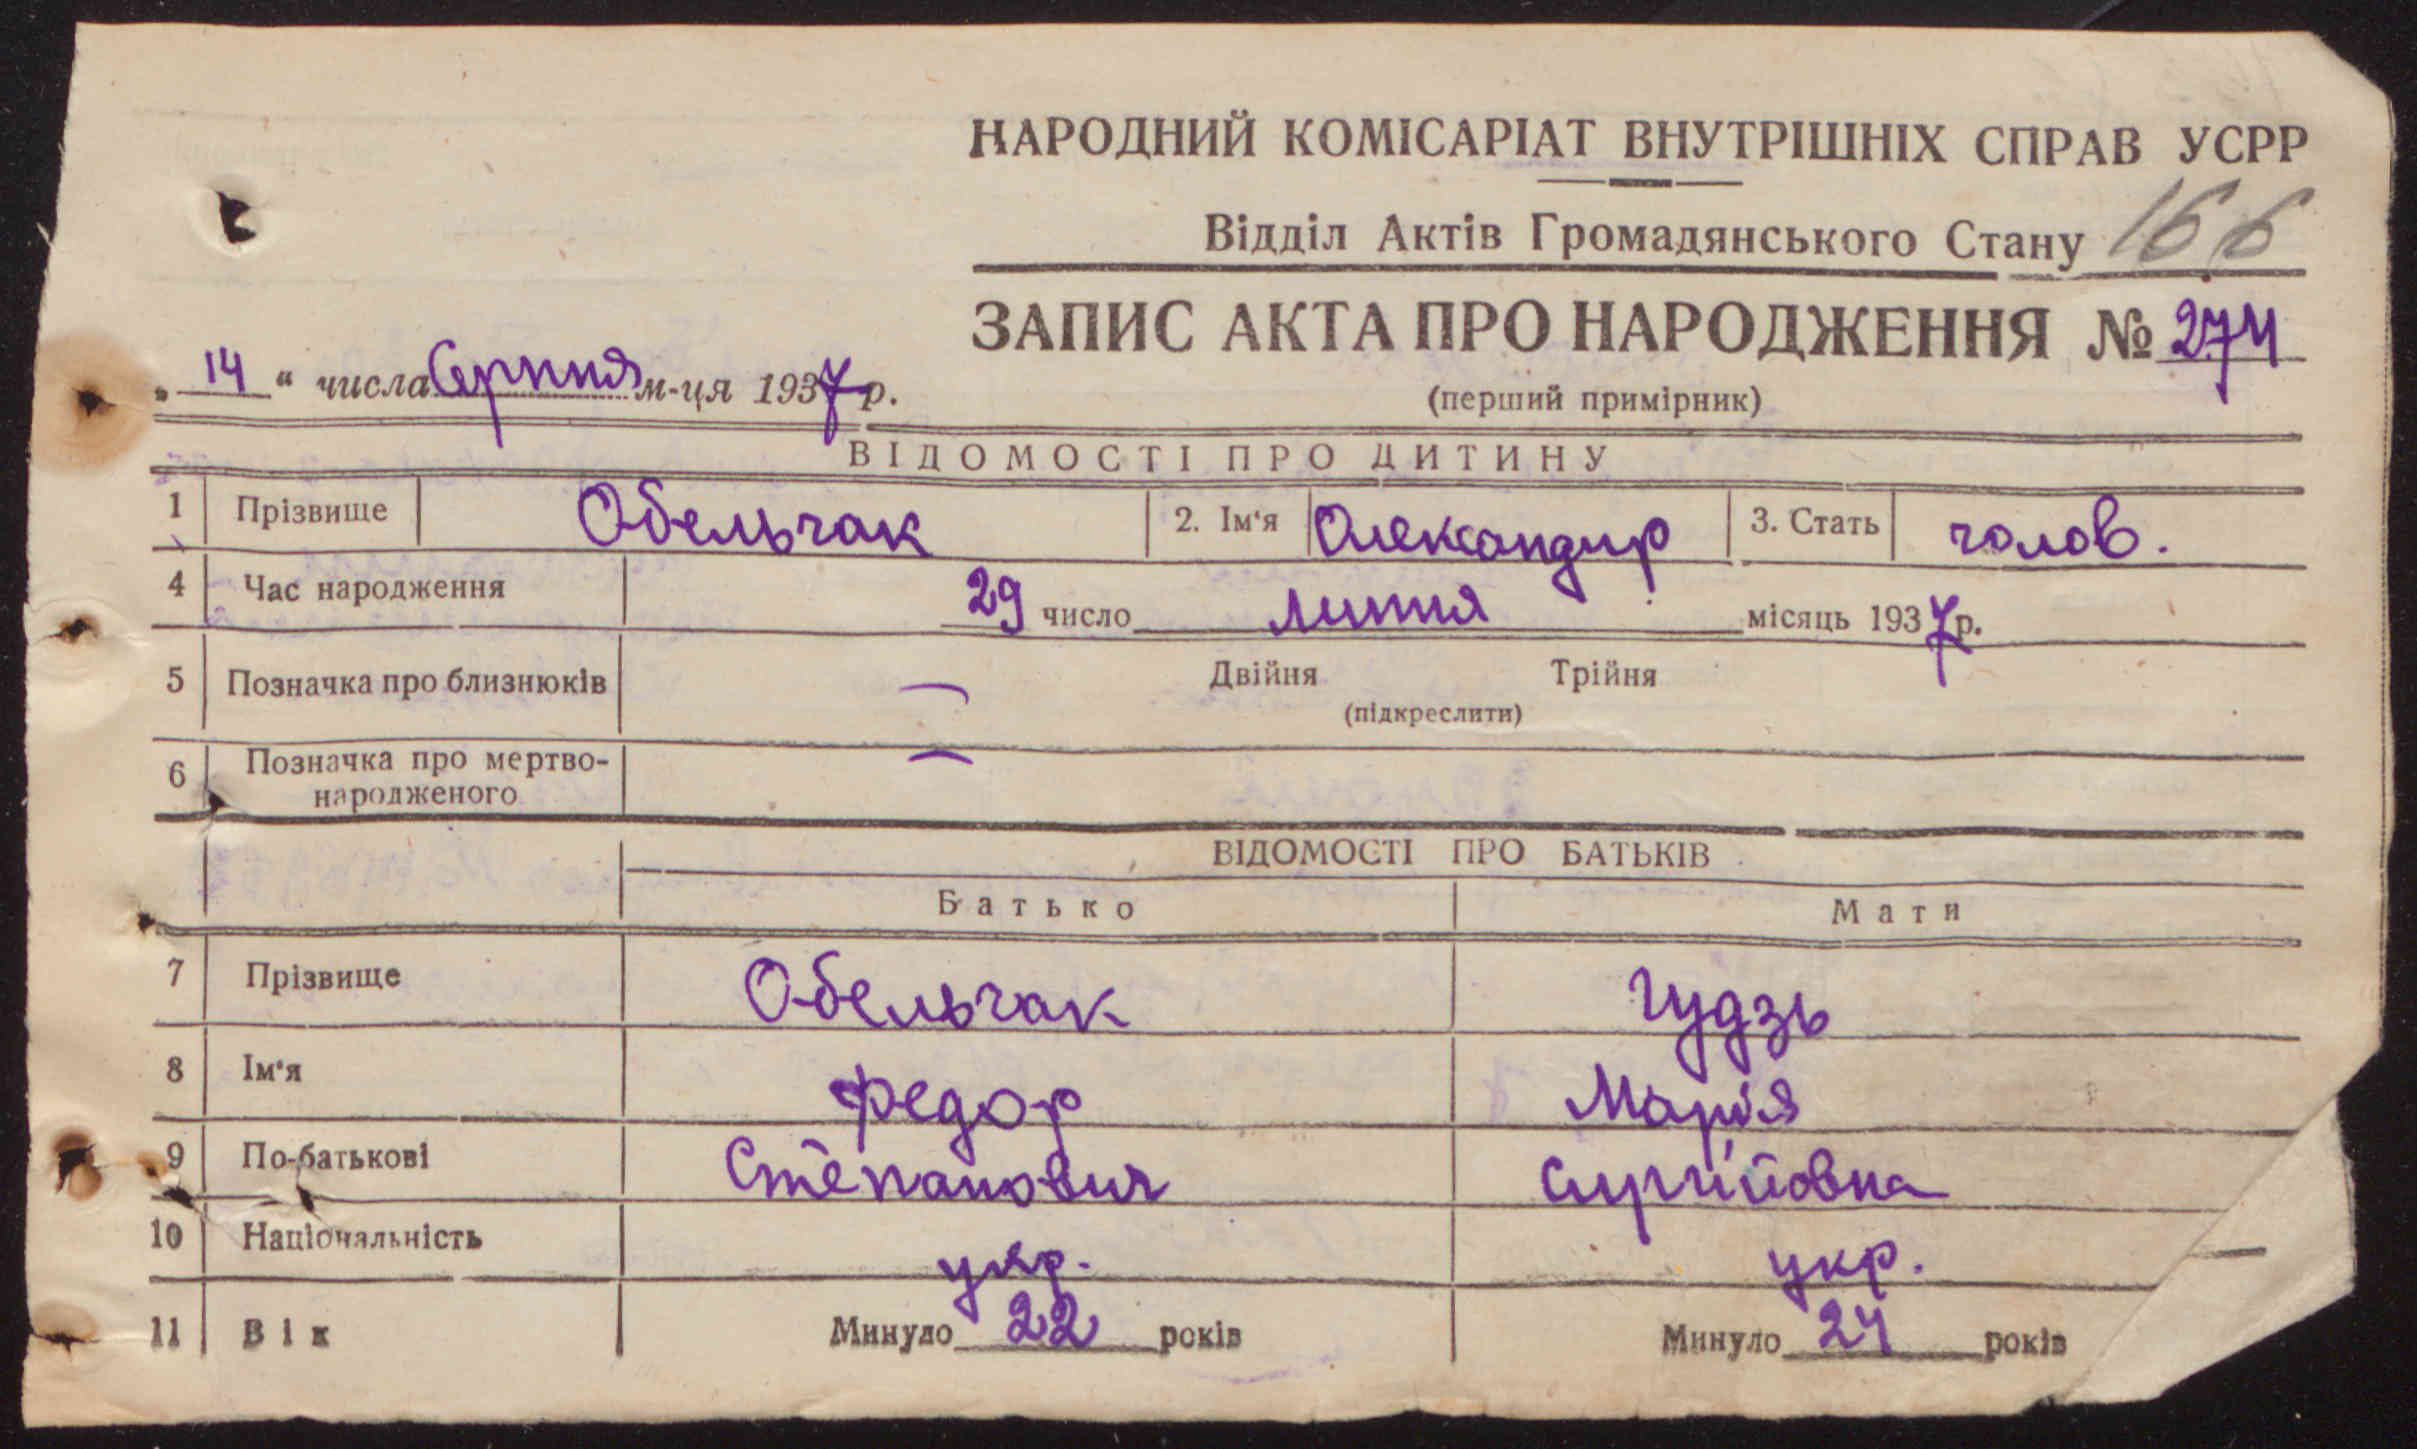 НАРОДНИЙ КОМІСАРІАТ ВНУТРІШНІХ СПРАВ УСРР
Відділ Актів Громадянського Стану 166
ЗАПИС АКТА ПРО НАРОДЖЕННЯ № 274
„ 14 “ числа Серпня м-ця 1937 р.
(перший примірник)
ВІДОМОСТІ ПРО ДИТИНУ
1 Прізвище Обельчак 2. Ім‘я Олександир 3. Стать чолов.
4 Час народження 29 число липня місяць 1937 р.
5 Позначка про близнюків — Двійня Трійня
(підкреслити)
6 Позначка про мертво- —
народженого
ВІДОМОСТІ ПРО БАТЬКІВ
Батько Мати
7 Прізвище Обельчак Гудзь
8 Ім‘я Федор Марія
9 По-батькові Степанович Сиргійовна
10 Національність укр. укр.
11 Вік Минуло 22 років Минуло 24 років